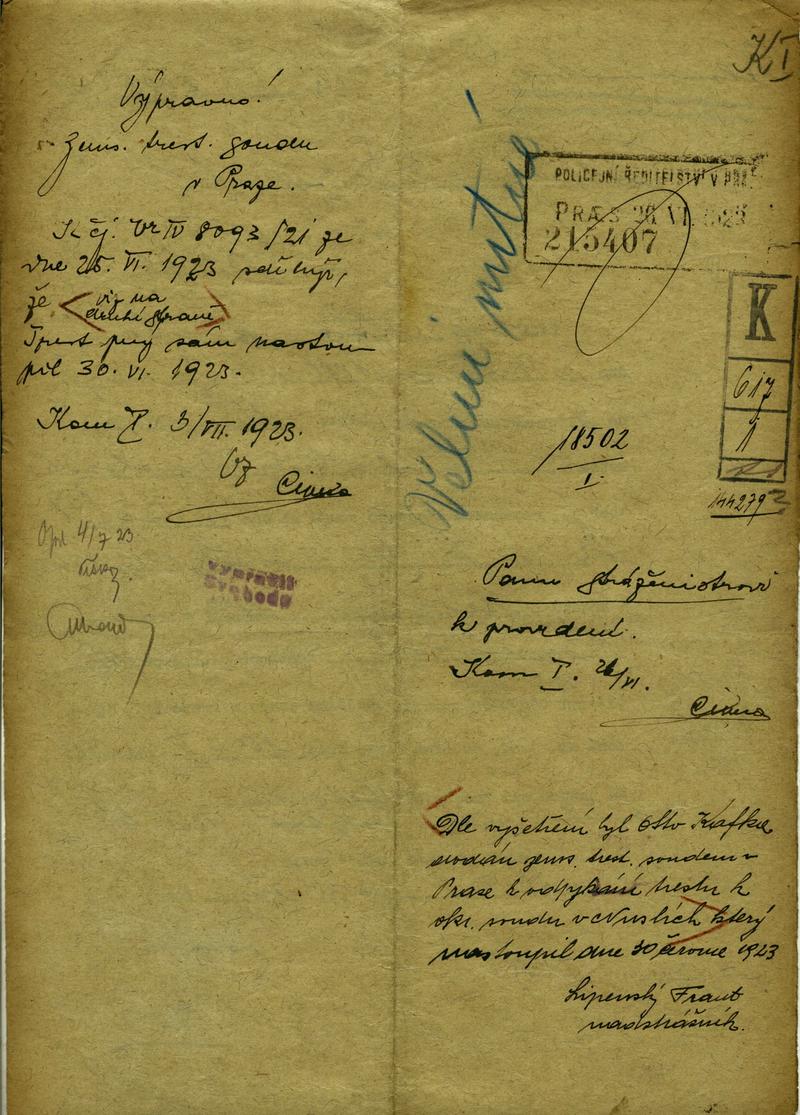 Výpravno!
Zems. trest. soudu
v Praze.
K čj. Vr IV 8093/21 ze
dne 25. VI. 1923 sděluji,
že < viz na
druhé straně >
Trest prý sám nastou
pil 30. VI. 1923.
Kom I. 3/VII. 1923.
Opd 4/7 23
Vypravil
Svoboda
K I
Velmi nutné!
POLICEJNÍ ŘEDITELSTVÍ V PRAZE
PRÆS 26 VI. 1923
215407
K
617
1
18502
I.
144279
Panu strážmistrovi
k provedení.
Kom I. 26/VI.
Dle vyšetření byl Otto Kafka
dodán zems. trest. soudem v
Praze k odpykání trestu k
okr. soudu v Nuslích který
nastoupil dne 30 června 1923
Lipenský Frant
nadstrážník.